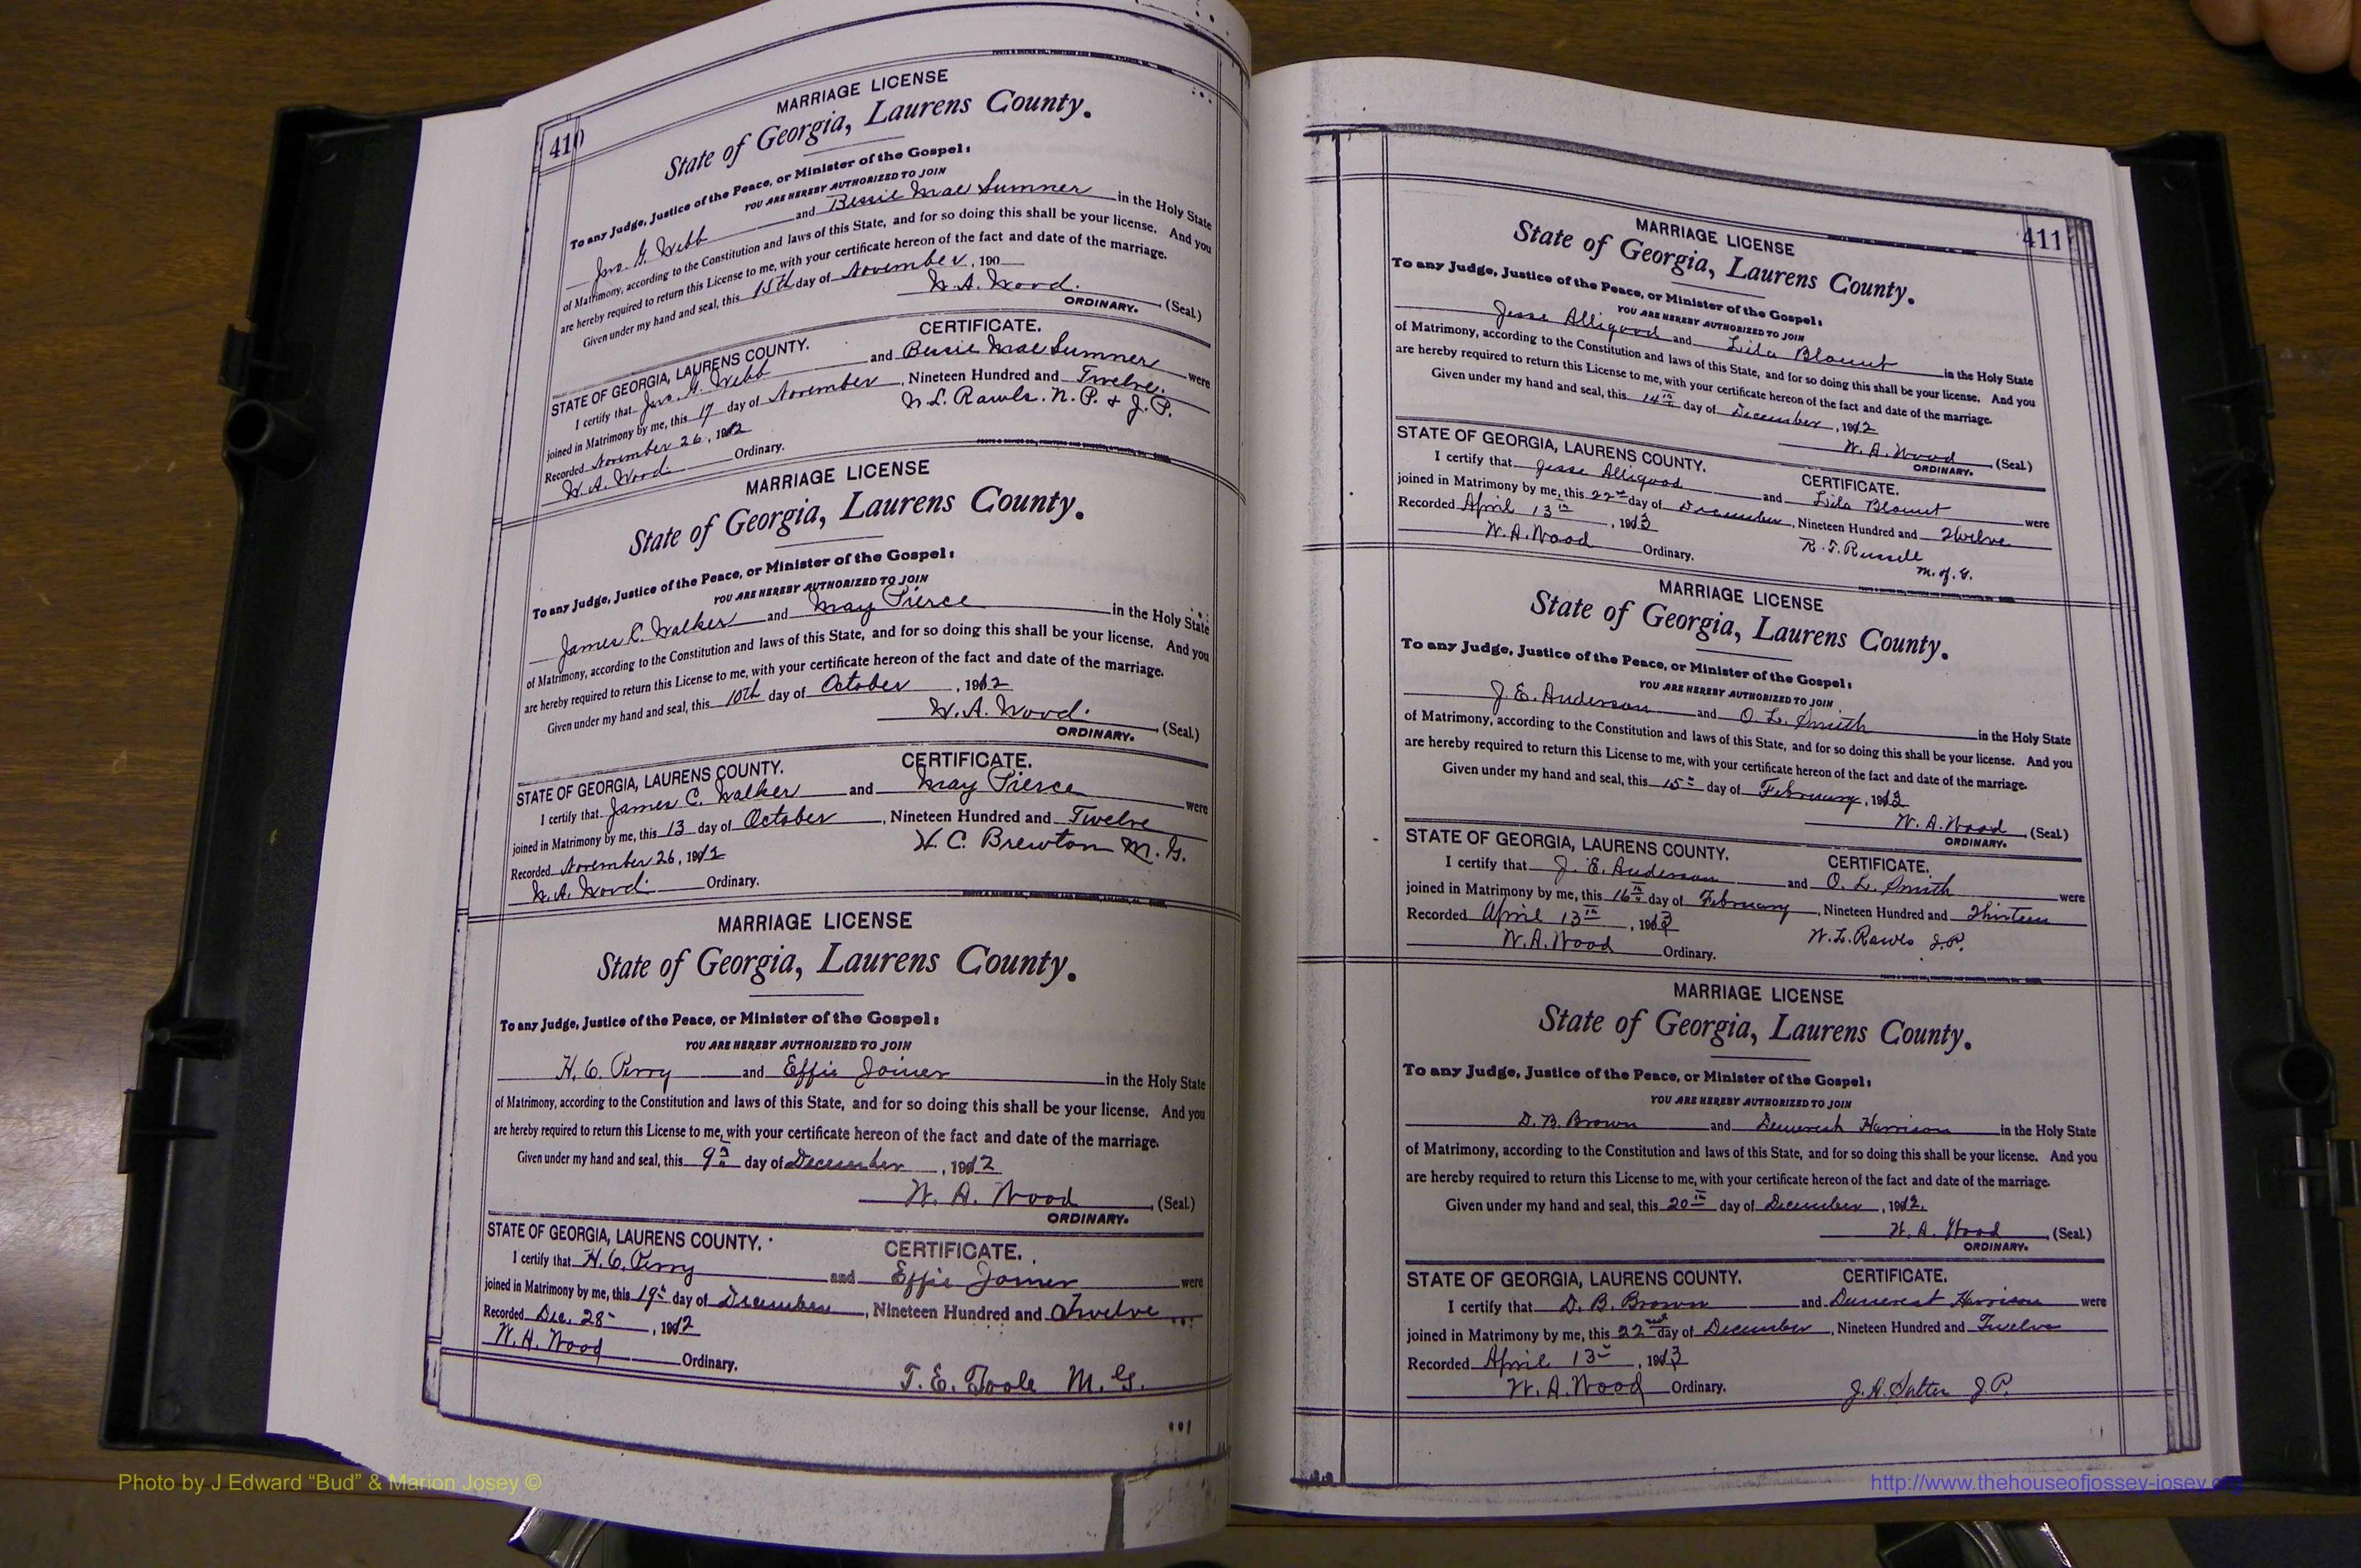 410
MARRIAGE LICENSE
State of Georgia, Laurens County.
To any Judge, Justice of the Peace, or Minister of the Gospel:
YOU ARE HEREBY AUTHORIZED TO JOIN
Jno. G. Webb and Bessie Mae Sumner in the Holy State
of Matrimony, according to the Constitution and laws of this State, and for so doing this shall be your license. And you
are hereby required to return this License to me, with your certificate hereon of the fact and date of the marriage.
Given under my hand and seal, this 15th day of November, 190
W. A. Wood. (Seal.)
ORDINARY.
CERTIFICATE.
STATE OF GEORGIA, LAURENS COUNTY.
I certify that Jno. G. Webb and Bessie Mae Sumner were
joined in Matrimony by me, this 17 day of November, Nineteen Hundred and Twelve.
Recorded November 26, 1912 N. L. Rawls. N. P. & J. P.
W. A. Wood. Ordinary.
MARRIAGE LICENSE
State of Georgia, Laurens County.
To any Judge, Justice of the Peace, or Minister of the Gospel:
YOU ARE HEREBY AUTHORIZED TO JOIN
James C. Walker and May Pierce in the Holy State
of Matrimony, according to the Constitution and laws of this State, and for so doing this shall be your license. And you
are hereby required to return this License to me, with your certificate hereon of the fact and date of the marriage.
Given under my hand and seal, this 10th day of October, 1912
W. A. Wood. (Seal.)
ORDINARY.
CERTIFICATE.
STATE OF GEORGIA, LAURENS COUNTY.
I certify that James C. Walker and May Pierce were
joined in Matrimony by me, this 13 day of October, Nineteen Hundred and Twelve
Recorded November 26, 1912 H. C. Brewton M. G.
W. A. Wood. Ordinary.
MARRIAGE LICENSE
State of Georgia, Laurens County.
To any Judge, Justice of the Peace, or Minister of the Gospel:
YOU ARE HEREBY AUTHORIZED TO JOIN
H. C. Perry and Effie Joiner in the Holy State
of Matrimony, according to the Constitution and laws of this State, and for so doing this shall be your license. And you
are hereby required to return this License to me, with your certificate hereon of the fact and date of the marriage.
Given under my hand and seal, this 9 day of December, 1912
W. A. Wood (Seal.)
ORDINARY.
STATE OF GEORGIA, LAURENS COUNTY. CERTIFICATE.
I certify that H. C. Perry and Effie Joiner were
joined in Matrimony by me, this 19 day of December, Nineteen Hundred and Twelve
Recorded Dec. 28, 1912
W. A. Wood Ordinary.
T. E. Toole M. G.
411
MARRIAGE LICENSE
State of Georgia, Laurens County.
To any Judge, Justice of the Peace, or Minister of the Gospel:
YOU ARE HEREBY AUTHORIZED TO JOIN
Jesse Alligood and Lila Blount in the Holy State
of Matrimony, according to the Constitution and laws of this State, and for so doing this shall be your license. And you
are hereby required to return this License to me, with your certificate hereon of the fact and date of the marriage.
Given under my hand and seal, this 14th day of December, 1912
W. A. Wood (Seal.)
ORDINARY.
STATE OF GEORGIA, LAURENS COUNTY. CERTIFICATE.
I certify that Jesse Alligood and Lila Blount were
joined in Matrimony by me, this 22nd day of December, Nineteen Hundred and Twelve
Recorded April 13th, 1913 R. T. Russell
W. A. Wood Ordinary. M. of G.
MARRIAGE LICENSE
State of Georgia, Laurens County.
To any Judge, Justice of the Peace, or Minister of the Gospel:
YOU ARE HEREBY AUTHORIZED TO JOIN
J. E. Anderson and O. L. Smith in the Holy State
of Matrimony, according to the Constitution and laws of this State, and for so doing this shall be your license. And you
are hereby required to return this License to me, with your certificate hereon of the fact and date of the marriage.
Given under my hand and seal, this 15 day of February, 1913
W. A. Wood (Seal.)
ORDINARY.
STATE OF GEORGIA, LAURENS COUNTY. CERTIFICATE.
I certify that J. E. Anderson and O. L. Smith were
joined in Matrimony by me, this 16th day of February, Nineteen Hundred and Thirteen
Recorded April 13th, 1913 N. L. Rawls J. P.
W. A. Wood Ordinary.
MARRIAGE LICENSE
State of Georgia, Laurens County.
To any Judge, Justice of the Peace, or Minister of the Gospel:
YOU ARE HEREBY AUTHORIZED TO JOIN
D. B. Brown and Harrison in the Holy State
of Matrimony, according to the Constitution and laws of this State, and for so doing this shall be your license. And you
are hereby required to return this License to me, with your certificate hereon of the fact and date of the marriage.
Given under my hand and seal, this 20th day of December, 1912.
W. A. Wood (Seal.)
ORDINARY.
STATE OF GEORGIA, LAURENS COUNTY. CERTIFICATE.
I certify that D. B. Brown and Harrison were
joined in Matrimony by me, this 22nd day of December, Nineteen Hundred and Twelve
Recorded April 13, 1913
W. A. Wood Ordinary. J. A. Salter J. P.
Photo by J Edward “Bud” & Marion Josey ©
http://www.thehouseofjossey-josey.org